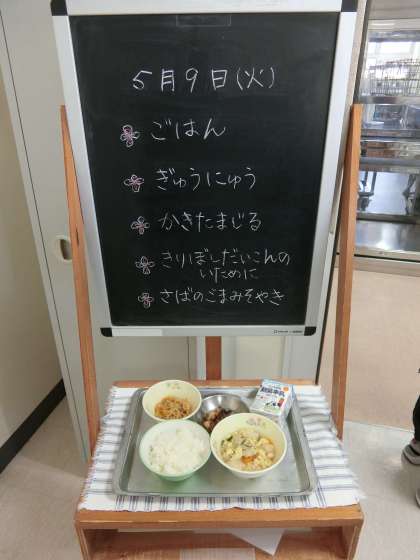 5月9日(火)
ごはん
ぎゅうにゅう
かきたまじる
きりぼしだいこんの
いために
さばのごまみそやき